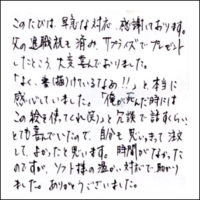 このたびは、早急な対応、感謝しております。
父の退職祝も済み、サプライズでプレゼント
したところ、大変喜んでおりました。
「よく、書(描)けているなぁ!!」と、本当に
感心していました。「俺が死んだ時には
この絵を使ってくれ(笑)」と冗談で話すくらい、
とても喜んでいたので、自分も思いきって注文
して、よかったと思います。時間がなかった
のですが、ソフト様の温かい対応で助かり
ました。ありがとうございました。